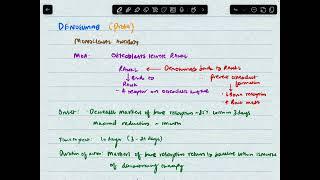 DENOSUMAB (Prolia)
MONOCLONAL ANTIBODY
MOA: OSTEOBLASTS secrete RANKL
RANKL ← Denosumab binds to RANKL → prevent osteoclast formation
↓ binds to
RANK
- A receptor on osteoclast surface
↓ bone resorption
↑ Bone mass
Onset: Decreases markers of bone resorption ~85% within 3 days
maximal reductions ~ 1 month
Time to peak: 10 days (3 - 21 days)
Duration of action: Markers of bone resorption return to baseline within 12 months
of discontinuing therapy